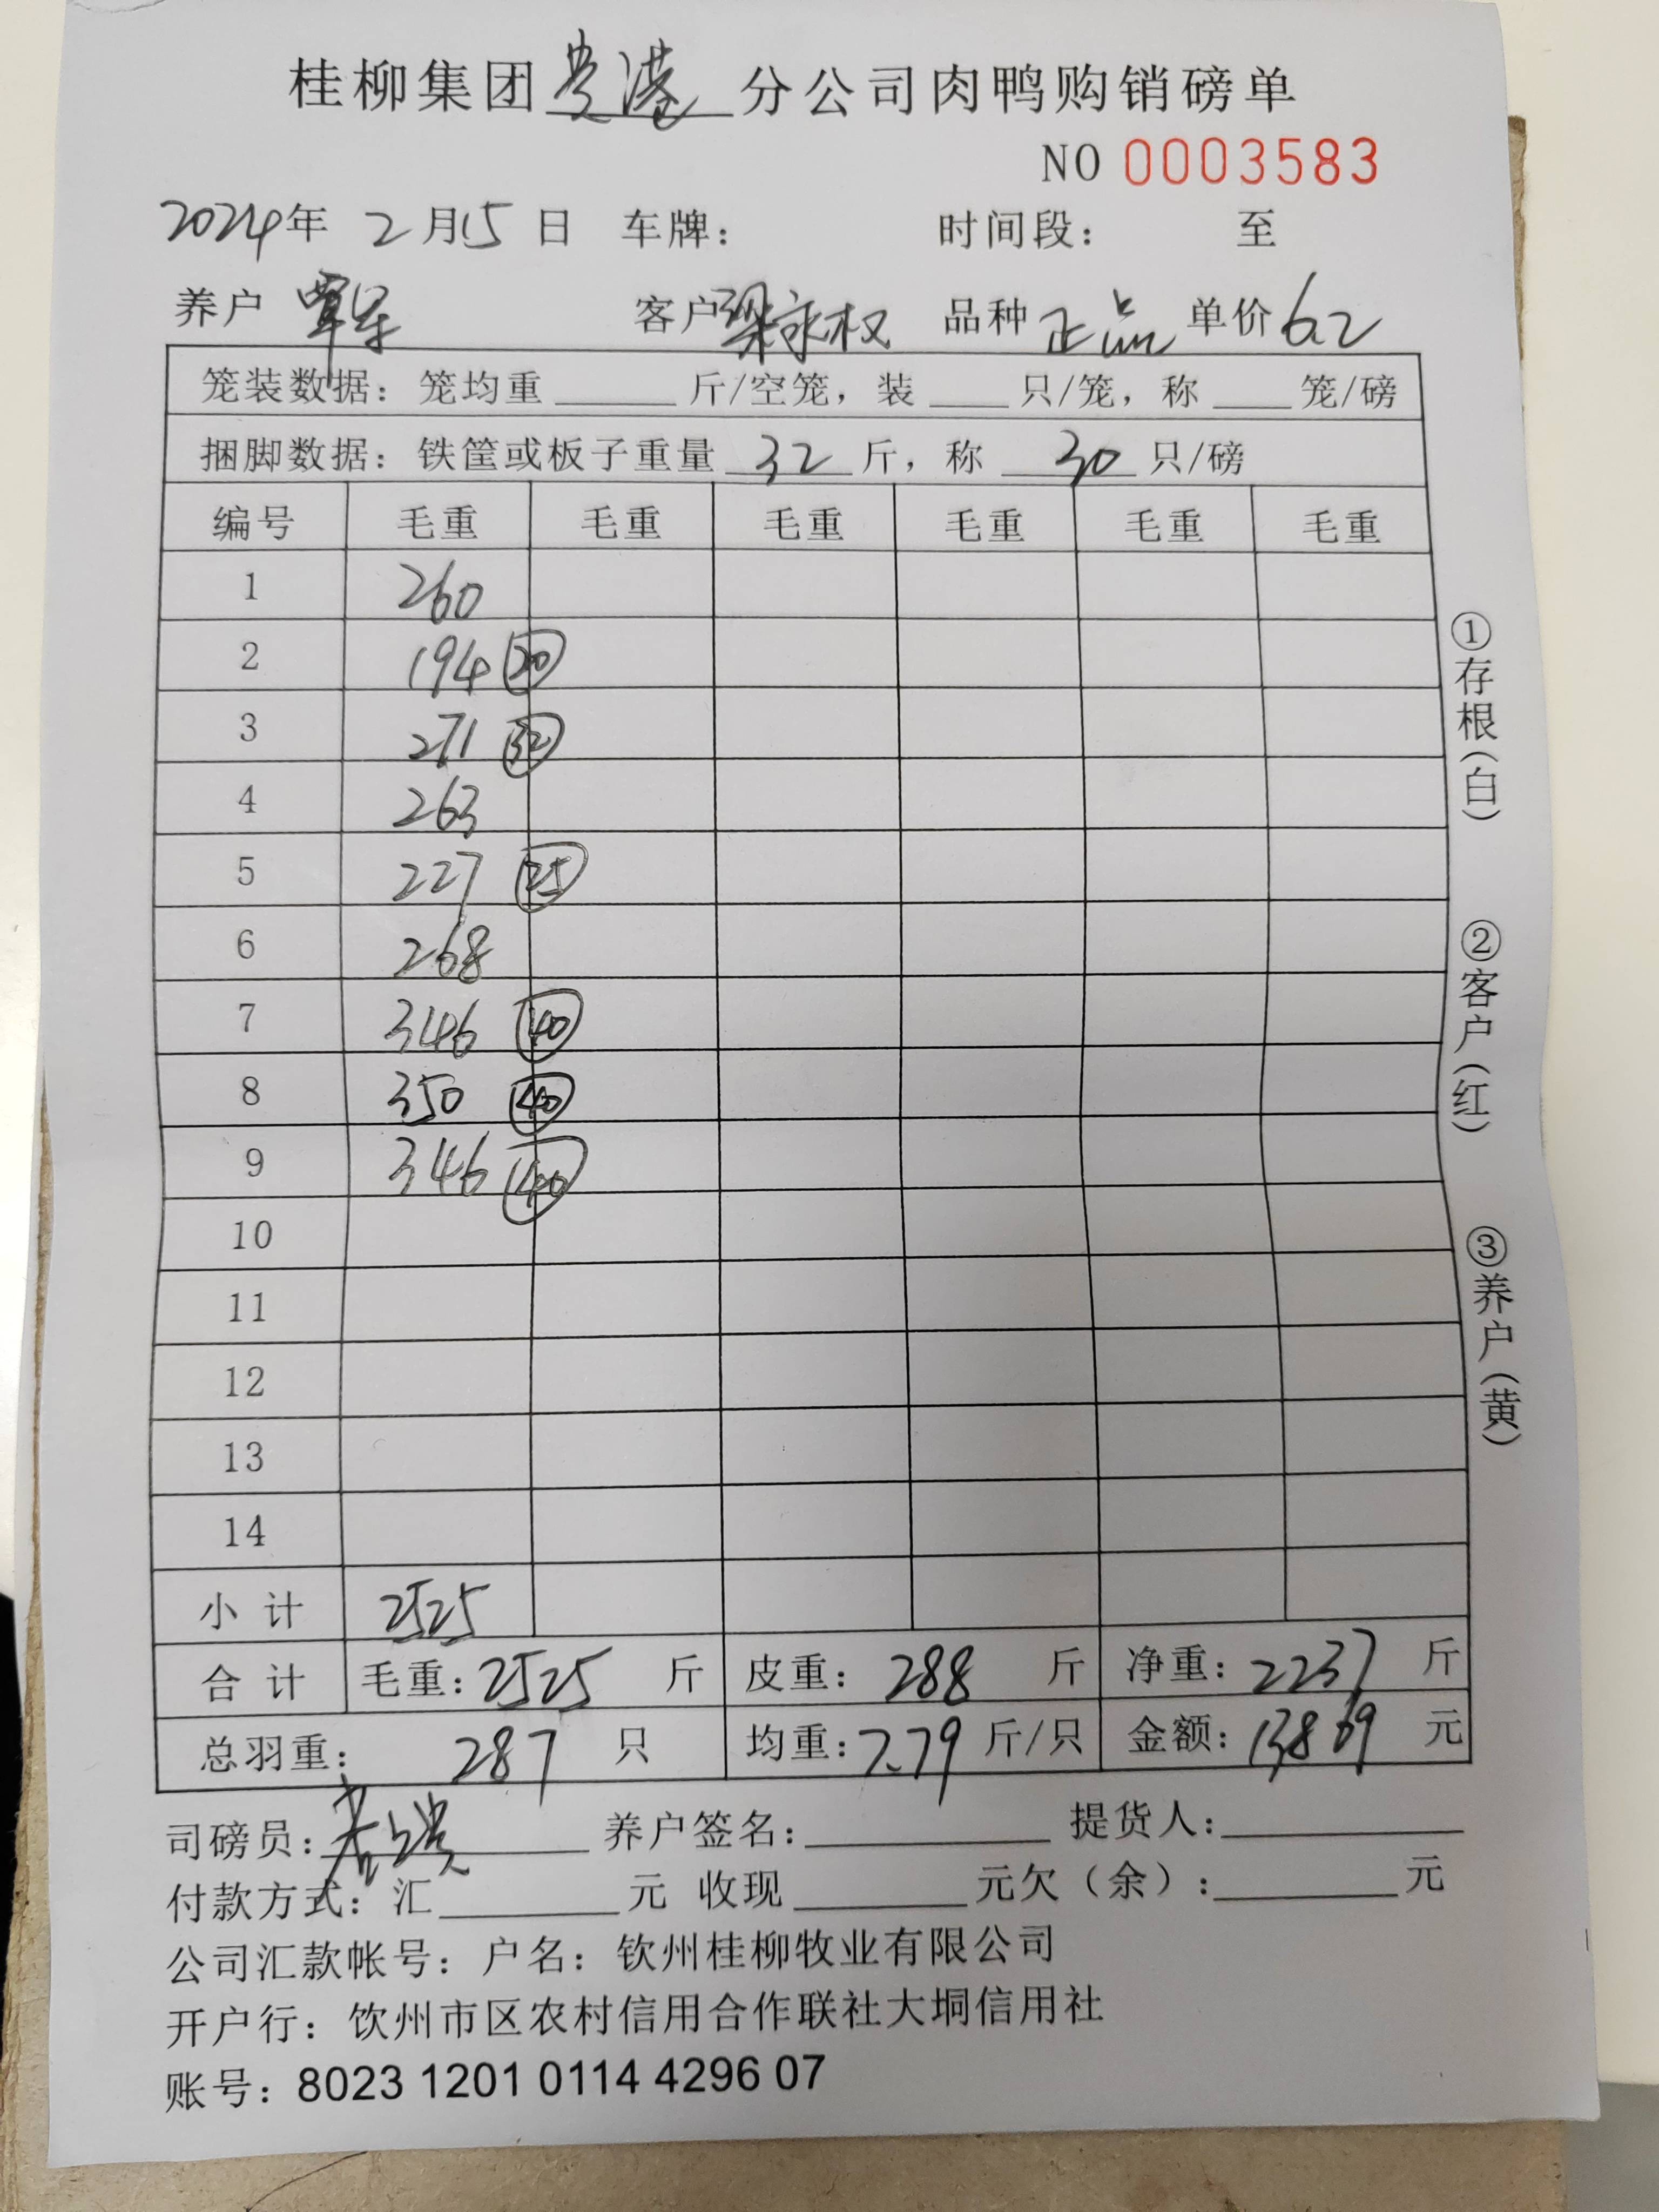 桂柳集团贵港分公司肉鸭购销磅单
NO 0003583
2024年 2月15日 车牌： 时间段： 至
养户 覃军 客户 梁永权 品种 正品 单价 6.2
笼装数据：笼均重 斤/空笼，装 只/笼，称 笼/磅
捆脚数据：铁筐或板子重量 32 斤，称 30 只/磅
编号 毛重 毛重 毛重 毛重 毛重 毛重
1 260
2 194 20
3 271 32
4 263
5 227 25
6 268
7 346 40
8 350 40
9 346 40
10
11
12
13
14
小计 2525
合计 毛重：2525 斤 皮重：288 斤 净重：2237 斤
总羽重：287 只 均重：7.79 斤/只 金额：13869 元
司磅员： 养户签名： 提货人：
付款方式：汇 元 收现 元欠（余）： 元
公司汇款帐号：户名：钦州桂柳牧业有限公司
开户行：钦州市区农村信用合作联社大垌信用社
账号：8023 1201 0114 4296 07
①存根（白）
②客户（红）
③养户（黄）